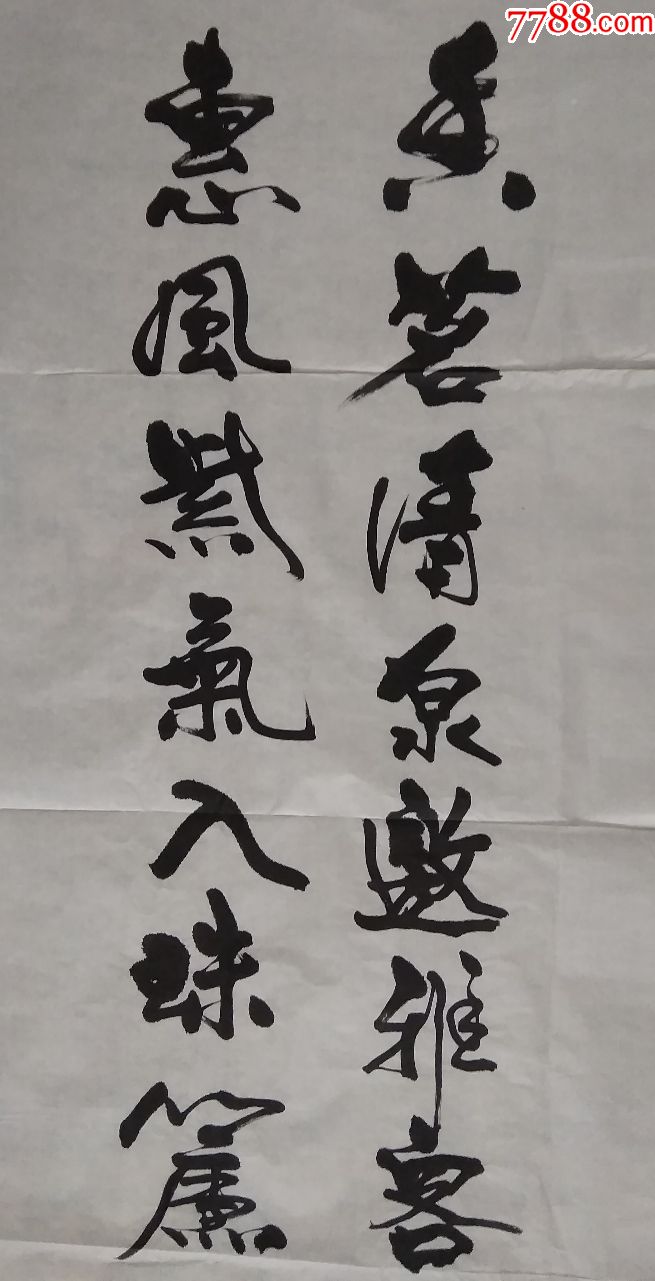 7788.com
香茗清泉邀雅客
惠風紫氣入珠簾